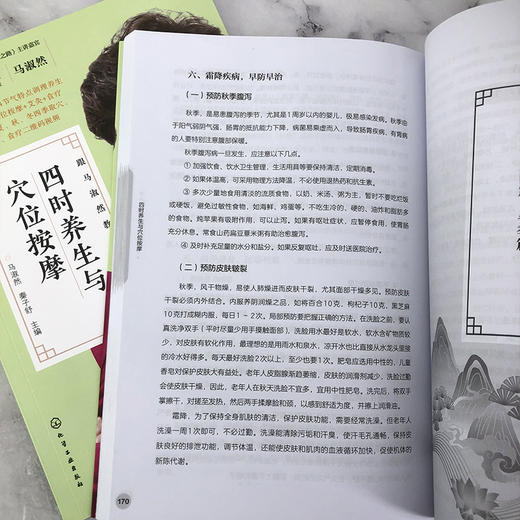 之路》主讲嘉宾
马淑然
节气特点调理养生
位按摩+艾灸+食疗
秋、冬四季取穴、
食疗二维码视频
跟马淑然教
四时养生与
穴位按摩
马淑然 秦子舒 主编
化学工业出版社
四时养生与穴位按摩
六、霜降疾病,早防早治
(一)预防秋季腹泻
秋季,是易患腹泻的季节,尤其是1周岁以内的婴儿,极易感染发病。秋季,由
于阳气弱阴气强,肠胃的抵抗能力下降,病菌易乘虚而入,导致肠胃疾病,有胃病
的人要特别注意腹部保暖。
秋季腹泻病一旦发生,应注意以下几点。
① 加强饮食、饮水卫生管理,生活用具等要保持清洁,定期消毒。
② 如果体温高,可采用物理方法降温,不必使用退热药和抗生素。
③ 多次少量地食用清淡的流质食物,以奶、米汤、粥为主,暂时不要吃烂饭
或硬饭,避免过敏性食物,如海鲜、鸡蛋等。不吃生冷的、硬的、油炸和脂肪多
的食物。炖苹果有吸附作用,可以止泻。如果有呕吐症状,应暂停食用,使胃肠
充分休息。常食山药扁豆薏米粥有助治愈腹泻。
④ 及时补充足量的水分和盐分。如果反复呕吐,应及时送医院治疗。
(二)预防皮肤皲裂
秋季,风干物燥,易使人肺燥进而皮肤干裂,尤其面部干燥多见。预防皮肤
干裂必须内外结合。内服养阴润燥之品,如将百合10克、枸杞子10克、黑芝麻
10克打成糊内服,每日1~2次。局部预防要把握正确的方法。在洗脸之前,要认
真洗净双手(平时尽量少用手摸触面部)。洗脸用水最好是软水,软水含矿物质较
少,对皮肤有软化作用,最理想的是用雨水和泉水,凉开水也比直接从水龙头里接
的冷水好得多。每天最好洗脸2次以上,至少也要1次。肥皂应选用中性的,儿童
香皂对保护皮肤大有益处。老年人皮脂腺渐趋萎缩,皮肤的润滑剂减少,洗脸过勤
会使皮肤干燥,因此,老年人在秋天洗脸不宜多,宜用中性肥皂。洗完后,将双手
掌擦干,对搓至发热,然后两手揉摩脸和颈,以感到舒适为度,并擦上润滑油。
霜降,为了保持全身肌肤的清洁,保护皮肤功能,需要经常洗澡。但老年人
洗澡一周1次即可,不必过勤。洗澡能清除污垢和汗臭,使汗毛孔通畅,保持皮
肤良好的排泄功能,调节体温,还能使皮肤和肌肉的血液循环加快,促使机体的
新陈代谢。
170